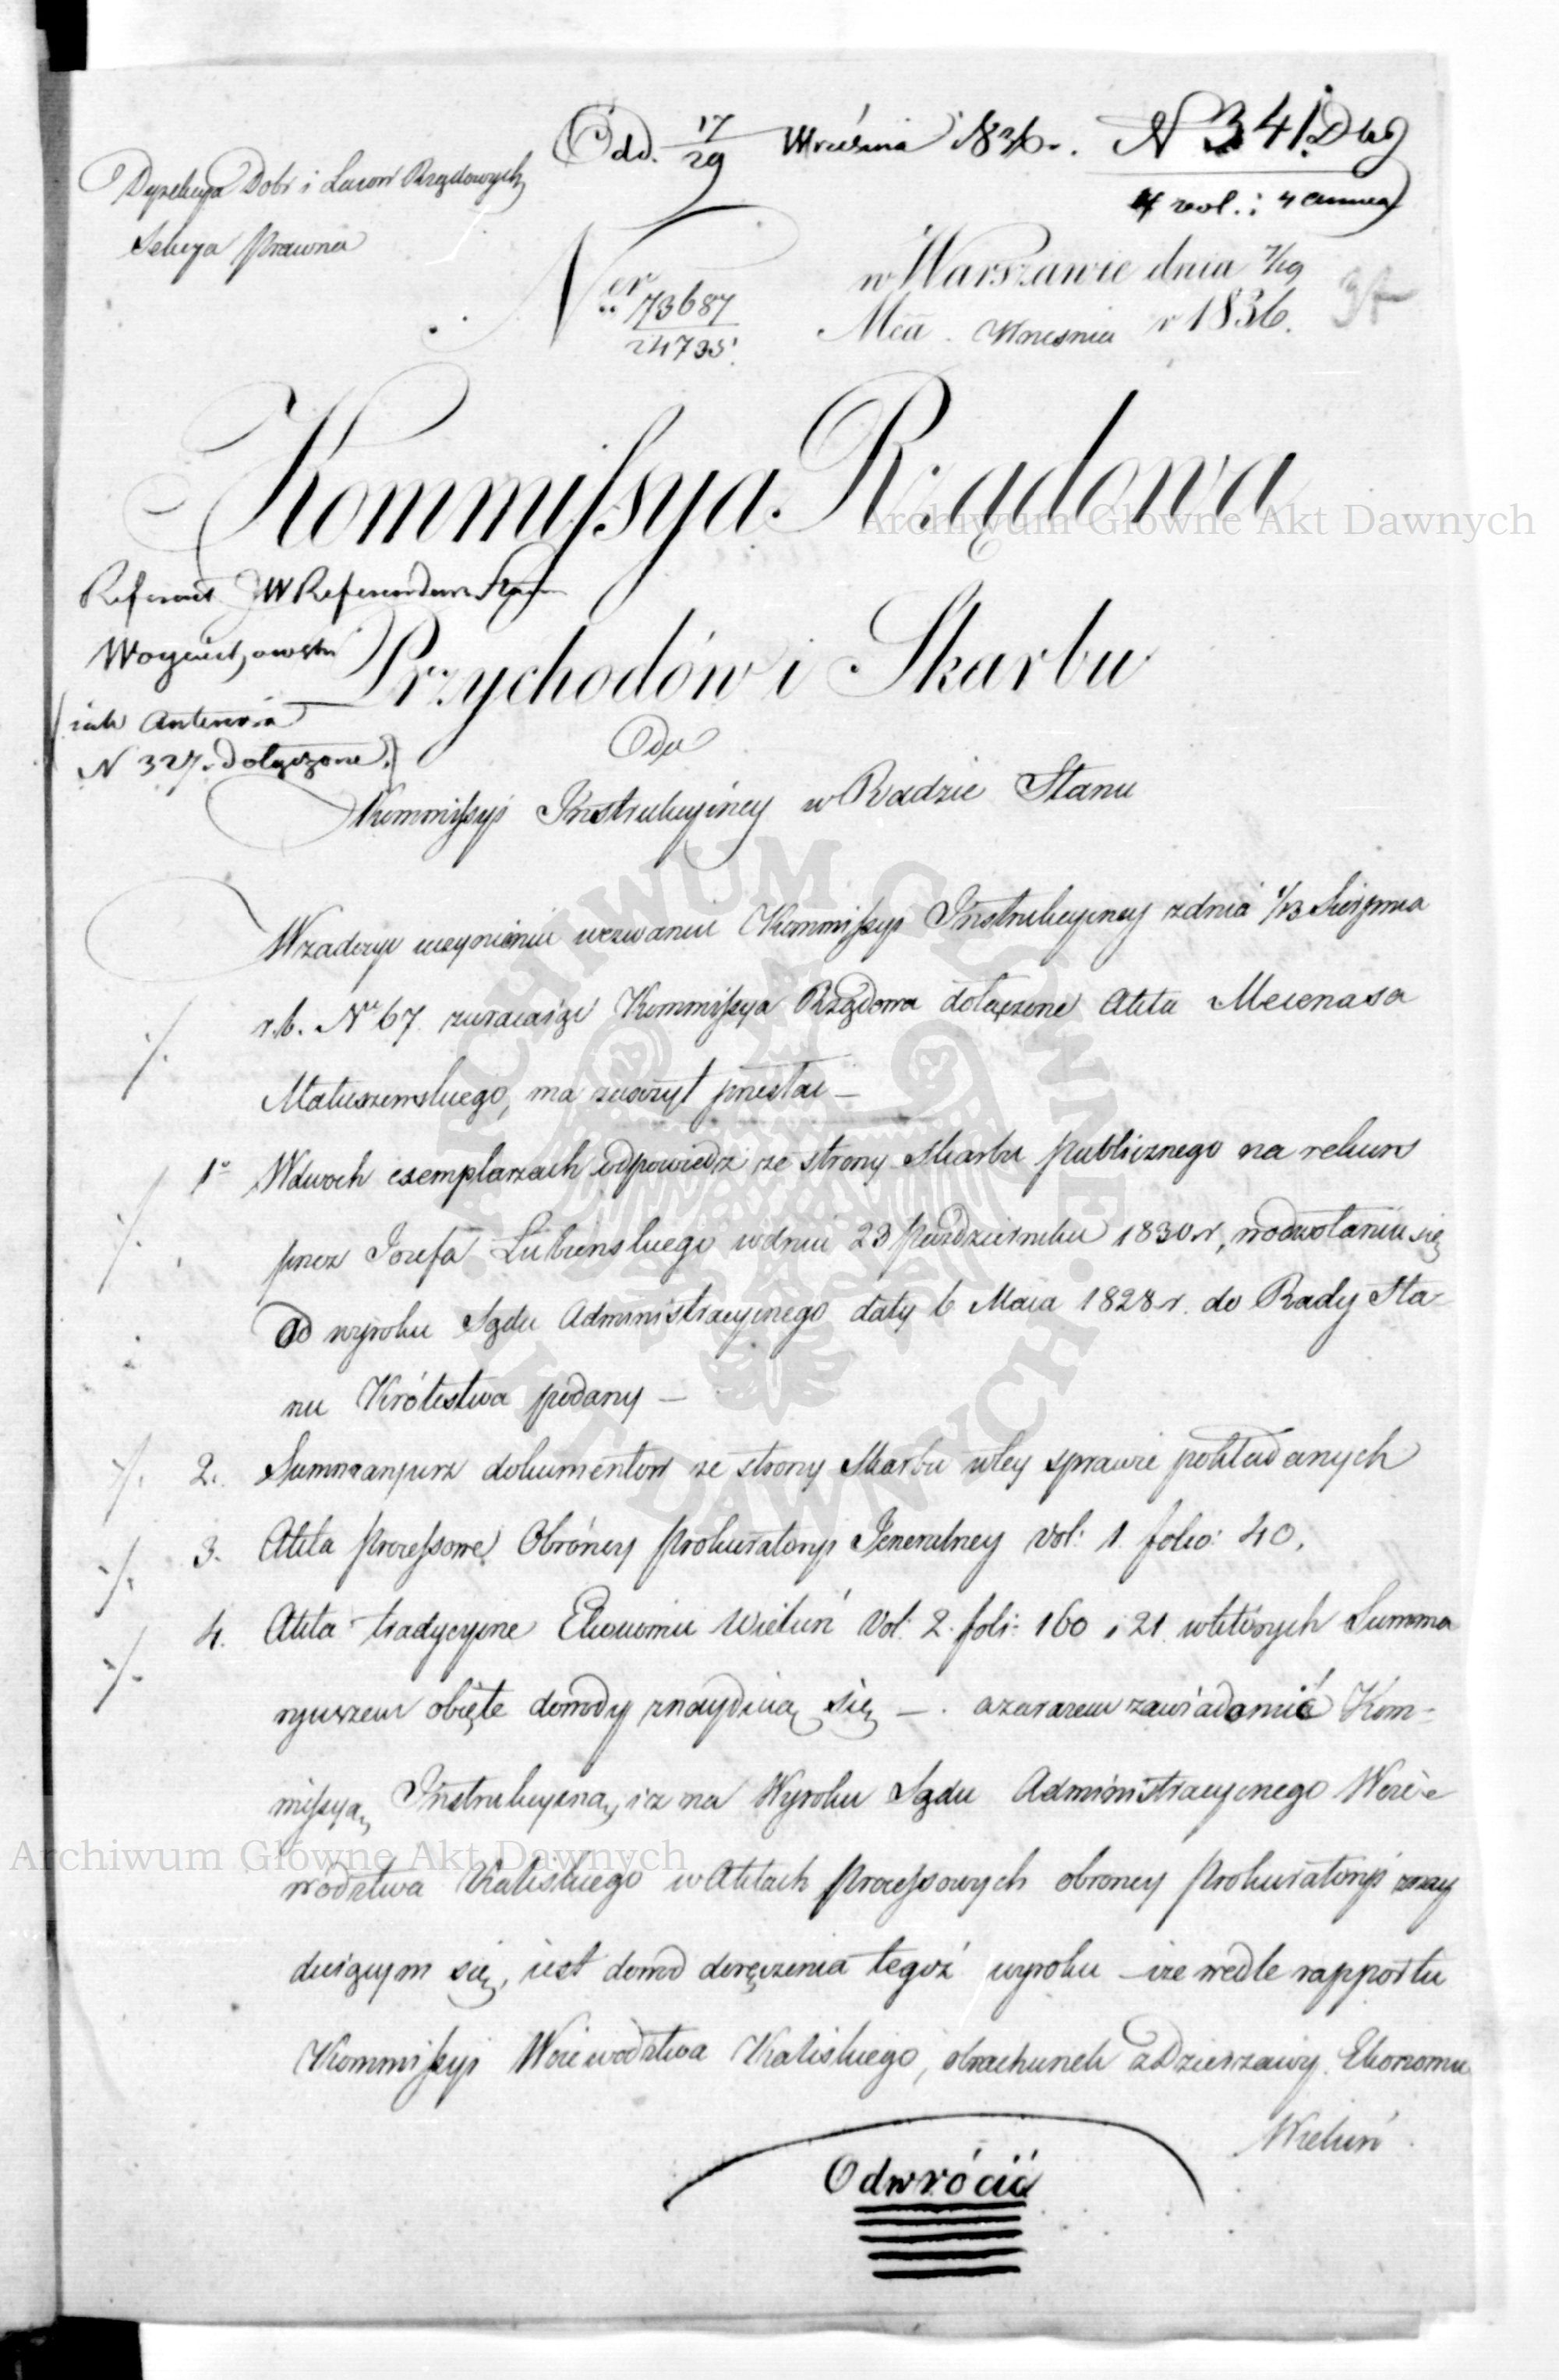 Odd. 17/29 Września 1836 r. N 341 Dz
4 vol. : 4 annexa
Dyrekcya Dobr i Lasow Rządowych
Sekcya Prawna
Ner 73687/24735.
w Warszawie dnia 7/19
Mca Wrzesnia r 1836.
Kommissya Rządowa
Referent JW Referendarz Stanu
Przychodów i Skarbu
(iak Anteriora
N 327. dołączone.)
Do
Kommissyi Instrukcyiney w Radzie Stanu
Wzadosyc uczynieniu wezwaniu Kommissyi Instrukcyiney zdnia 1/13 Sierpnia
r.b. No 67 zwracaiąc Kommissya Rządowa dołączone Akta Mecenasa
Matuszewskiego, ma zaszczyt przesłać —
1o Wdwoch exemplarzach odpowiedz ze strony Skarbu publicznego na rekurs
przez Jozefa Lubienskiego wdniu 23 Pazdziernika 1830 r, wodwołaniu się
od wyroku Sądu Administracyinego daty 6 Maia 1828 r. do Rady Sta
nu Królestwa podany —
2. Summaryusz dokumentow ze strony Skarbu wtey sprawie pokładanych
3. Akta processowe Obróncy Prokuratoryi Jeneralney Vol: 1. folio: 40.
4. Akta tradycyine Ekonomii Wieluń Vol: 2. foli: 160 i 21. wktórych Summa
ryuszem obięte dowody znayduią się — . azarazem zawiadomić Kom=
missyą Instrukcyiną, iz na Wyroku Sądu Administracyinego Woie=
wodztwa Kaliskiego w Aktach Processowych obroncy Prokuratoryi znay
duiącym się, iest dowod doręczenia tegoż wyroku — ize wedle rapportu
Kommissyi Woiewodztwa Kaliskiego, obrachunek zDzierzawy Ekonomii
Wieluń
Odwrócić
Archiwum Główne Akt Dawnych
Archiwum Główne Akt Dawnych
ARCHIWUM GŁÓWNE AKT DAWNYCH